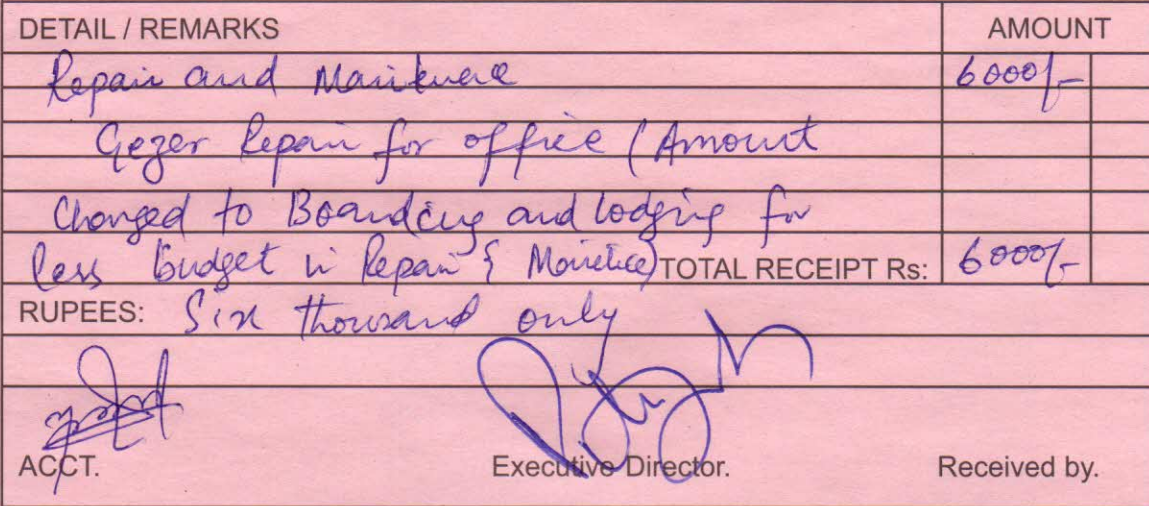 DETAIL / REMARKS AMOUNT
Repair and Maintenance 6000/-
Gezer Repair for office (Amount
Changed to Boarding and lodging for
less budget in Repair & Maintenance) TOTAL RECEIPT Rs: 6000/-
RUPEES: Six thousand only
ACCT. Executive Director. Received by.